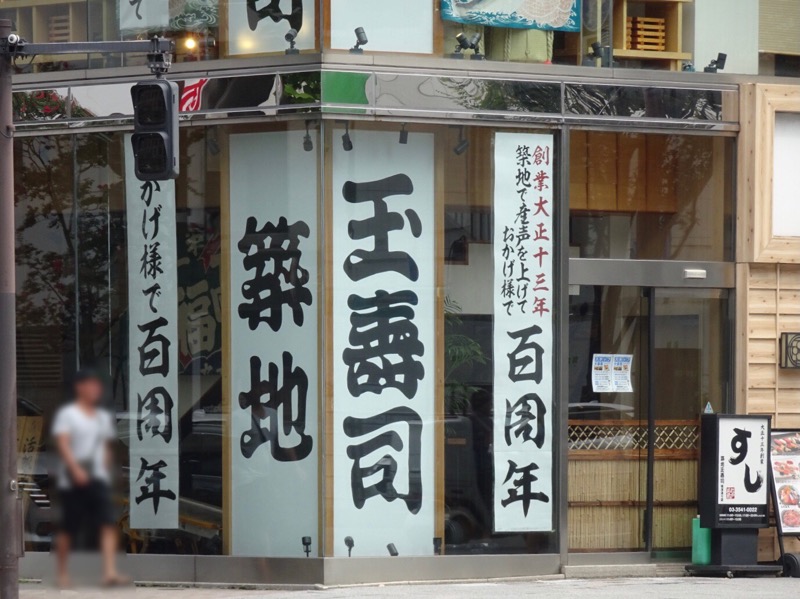 かげ様で
百周年
築地
玉寿司
創業大正十三年
築地で産声を上げて
おかげ様で
百周年
大正十三年創業
すし
築地玉寿司
03-3541-0022